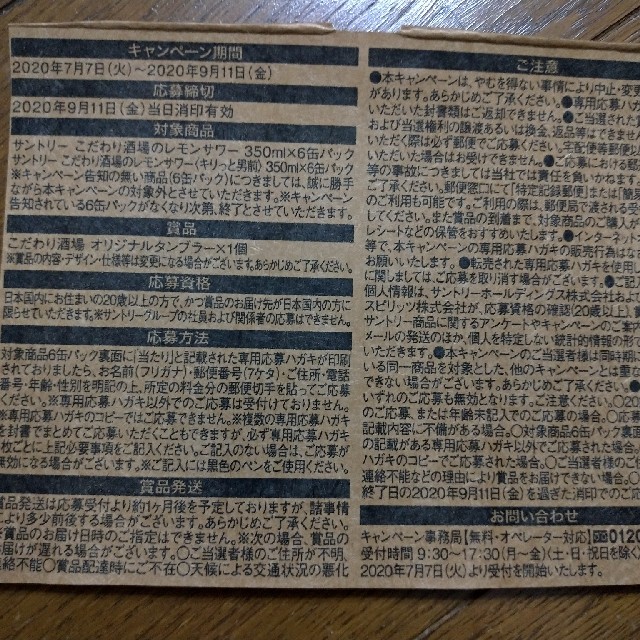 キャンペーン期間
2020年7月7日(火)～2020年9月11日(金)
応募締切
2020年9月11日(金)当日消印有効
対象商品
サントリー こだわり酒場のレモンサワー 350ml×6缶パック
サントリー こだわり酒場のレモンサワー〈キリっと男前〉350ml×6缶パック
※キャンペーン告知の無い商品(6缶パック)につきましては、誠に勝手
ながら本キャンペーンの対象外とさせていただきます。※キャンペーン
告知されている6缶パックがなくなり次第、終了とさせていただきます。
賞品
こだわり酒場 オリジナルタンブラー×1個
※賞品の内容・デザイン・仕様等は変更になる場合がございます。あらかじめご了承ください。
応募資格
日本国内にお住まいの20歳以上の方で、かつ賞品のお届け先が日本国内の方に
限らせていただきます。※サントリーグループの社員および関係者の応募はできません。
応募方法
対象商品6缶パック裏面に「当たり」と記載された専用応募ハガキが印刷
されておりましたら、お名前(フリガナ)・郵便番号(7ケタ)・ご住所・電話
番号・年齢・性別を明記の上、所定の料金分の郵便切手を貼ってご応募
ください。※専用応募ハガキ以外でのご応募は受付けておりません。
※専用応募ハガキのコピーではご応募できません。※複数の専用応募ハガキ
を封書でまとめてご応募いただくこともできますが、必ず専用応募ハガキ
枚ごとに上記必要事項をご記入ください。ご記入のない場合は、ご応募が
無効になる場合がございます。※ご記入には黒色のペンをご使用ください。
賞品発送
賞品発送は応募受付より約1ヶ月後を予定しておりますが、諸事情
により多少前後する場合がございます。あらかじめご了承ください。
※賞品のお届け日時のご指定はできません。※次の場合、賞品の
お届けが遅れる場合がございます。○ご当選者様のご住所が不明、
連絡不能○賞品配達時にご不在○天候による交通状況の悪化
ご注意
●本キャンペーンは、やむを得ない事情により中止・変更
があります。あらかじめご了承ください。●専用応募ハガ
いただいた封書類はご返却できません。●ご当選された賞
および当選権利の譲渡あるいは換金、返品等はできませ
いただく際は必ず郵便でご応募ください。宅配便等郵便以
いただいた場合はお受けできません。●ご応募における郵
等の事故につきましては当社では責任を負いかねます。
ご了承ください。郵便窓口にて「特定記録郵便」または「簡易
のご利用も可能です。ご利用の際は、郵便局で渡される受
してください。また賞品の到着まで、対象商品のご購入が
レシートなどの保管をおすすめいたします。●インターネット
等で、本キャンペーンの専用応募ハガキの販売行為はな
お願いいたします。●転売された専用応募ハガキを使用
に関しましては、ご応募を取り消す場合がございます。●
個人情報は、サントリーホールディングス株式会社およ
スピリッツ株式会社が、応募資格の確認(20歳以上)、賞
サントリー商品に関するアンケートやキャンペーンのご案内
メールの発送のほか、個人を特定しない統計的情報の形で
いただきます。●本キャンペーンのご当選者様は同時期に
いる同一商品を対象とした、他のキャンペーンとは重な
できない場合がございます。あらかじめご了承ください。
いずれのご応募も無効となります。ご注意ください。○20
のご応募、または年齢未記入でのご応募の場合。○応募
記載内容に不備がある場合。○対象商品6缶パック裏面
の記載がある専用応募ハガキ以外でご応募された場合。
ハガキのコピーでご応募された場合。○ご当選者様のご
連絡不能などの理由により賞品をお届けできない場合。
終了日の2020年9月11日(金)を過ぎた消印でのご応
お問い合わせ
キャンペーン事務局【無料・オペレーター対応】0120
受付時間 9:30～17:30(月～金)(土・日・祝日を除く)
2020年7月7日(火)より受付を開始いたします。